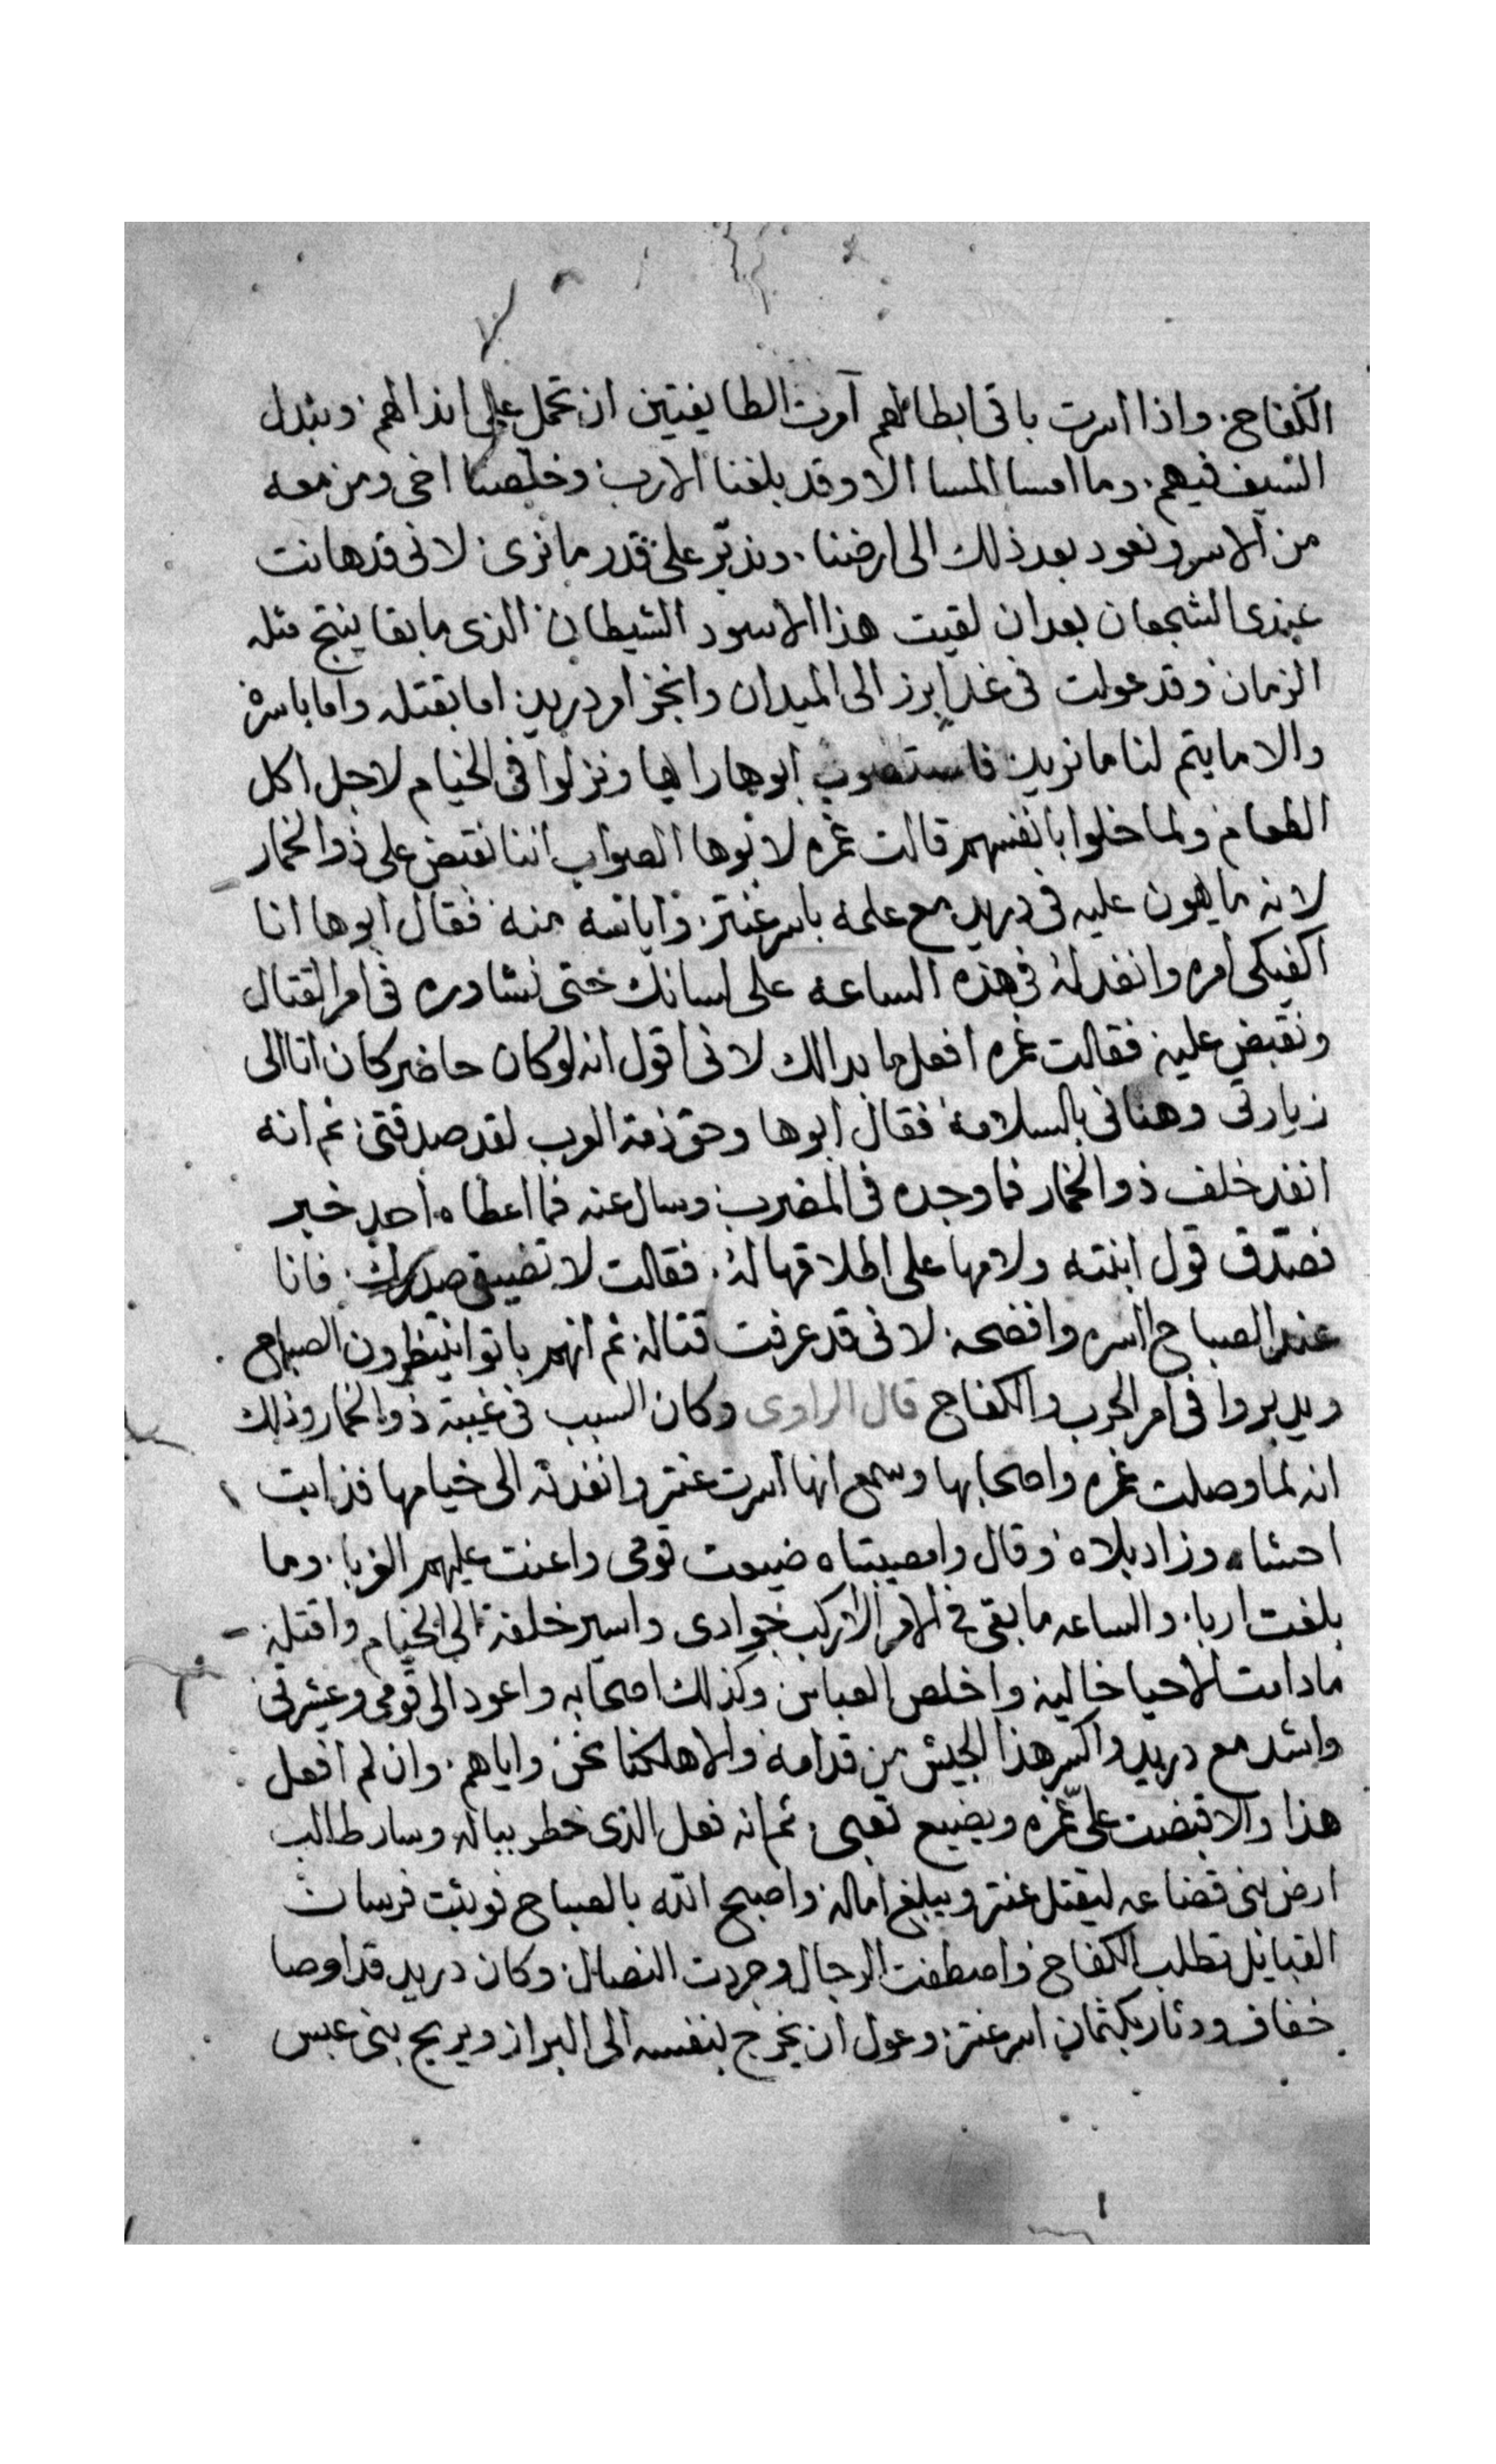 ٧
الكفاح. واذا اسرت باقى ابطالهم آمرت الطايفتين ان تحمل على انذالهم. ونبدل
السيف فيهم. وما امسا المسا الا وقد بلغنا الارب. وخلصنا اخى ومن معه
من الاسر ونعود بعد ذلك الى ارضنا. وندبّر على قدر ما نرى. لانى قد هانت
عندى الشجعان بعد ان لقيت هذا الاسود الشيطان الذى ما بقا ينتج مثله
الزمان وقد عولت فى غد ابرز الى الميدان وانجز امر دريد اما بقتله واما باسره
والا ما يتم لنا ما نريد فاستصوب ابوها رايها ونزلوا فى الخيام لاجل اكل
الطعام ولما خلوا بانفسهم قالت غمره لابوها الصواب اننا نقبض على ذو الخمار
لانه ما يهون عليه فى دريد مع علمه باسر عنتر. واياسه منه فقال ابوها انا
اكفيكى امره وانفد له فى هذه الساعه على لسانك حتى نشاوره فى امر القتال
ونقبض عليه فقالت غمره افعل ما بدالك لانى اقول انه لو كان حاضر كان اتا الى
زيارتى وهنانى بالسلامه فقال ابوها وحق ذمة العرب لقد صدقتى ثم انه
انفد خلف ذو الخمار فما وجده فى المضرب وسال عنه فما اعطاه احد خبر
فصدّق قول ابنته ولامها على اطلاقها له. فقالت لا تضيق صدرك. فانا
عند الصباح اسره وافضحه لانى قد عرفت قتاله ثم انهم باتوا ينتظرون الصباح
ويدبروا فى امر الحرب والكفاح قال الراوى وكان السبب فى غيبة ذو الخمار وذلك
انه لما وصلت غمره واصحابها وسمع انها اسرت عنتر وانفدته الى خيامها فذابت
احشاه وزاد بلاه وقال وامصيبتاه ضيعت قومى واعنت عليهم الغربا. وما
بلغت اربا. والساعه ما بقى فى الامر الا اركب جوادى واسير خلفه الى الخيام واقتله
ما دامت الاحيا خاليه واخلص العباس وكذلك اصحابه واعود الى قومى وعشرتى
واشد مع دريد واكسر هذا الجيش من قدامه والا هلكنا نحن واياهم. وان لم افعل
هذا والا قبضت على غمره ويضيع تعبى ثم انه فعل الذى خطر بباله وسار طالب
ارض بنى قضاعه ليقتل عنتر ويبلغ اماله واصبح الله بالصباح فوثبت فرسان
القبايل تطلب الكفاح واصطفت الرجال وجردت النصال وكان دريد قد اوصا
خفاف ودثار بكتمان اسر عنتر. وعول ان يخرج بنفسه الى البراز ويريح بنى عبس